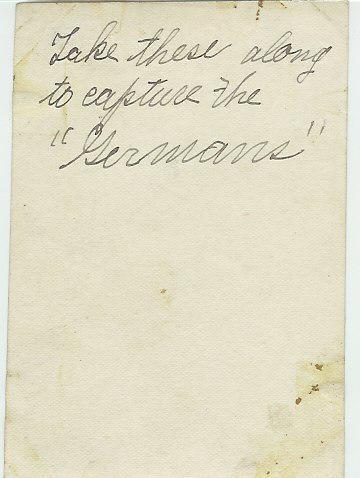 Take these along
to capture the
"Germans"